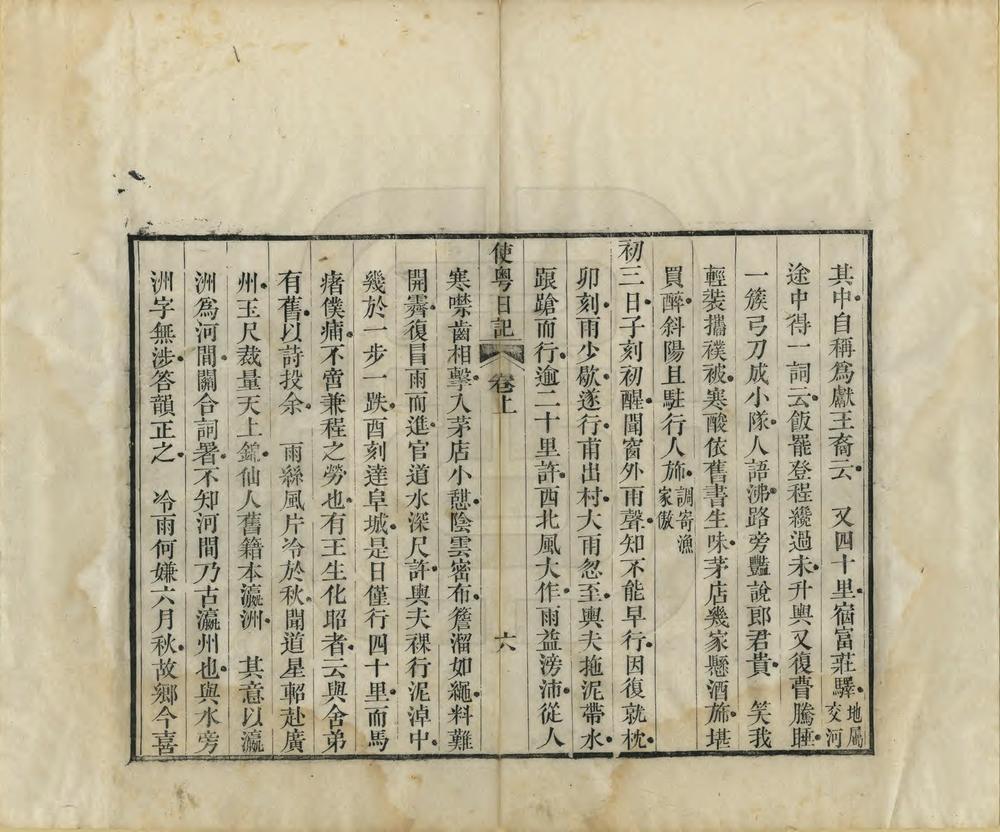 其中自稱爲獻王裔云　又四十里宿富莊驛地屬交河
途中得一詞云飯罷登程纔過未升輿又復瞢騰睡
一簇弓刀成小隊人語沸路旁豔說郎君貴　笑我
輕裝攜襆被寒酸依舊書生味茅店幾家懸酒斾堪
買醉斜陽且駐行人斾調寄漁家傲
初三日子刻初醒聞窗外雨聲知不能早行因復就枕
卯刻雨少歇遂行甫出村大雨忽至輿夫拖泥帶水
踉蹌而行逾二十里許西北風大作雨益滂沛從人
使粵日記　卷上　六
寒噤齒相擊入茅店小憩陰雲密布簷溜如繩料難
開霽復冒雨而進官道水深尺許輿夫裸行泥淖中
幾於一步一跌酉刻達阜城是日僅行四十里而馬
瘏僕痡不啻兼程之勞也有王生化昭者云與舍弟
有舊以詩投余　雨絲風片冷於秋聞道星軺赴廣
州玉尺裁量天上錦仙人舊籍本瀛洲　其意以瀛
洲爲河間關合詞署不知河間乃古瀛州也與水旁
洲字無涉答韻正之　冷雨何嫌六月秋故鄉今喜